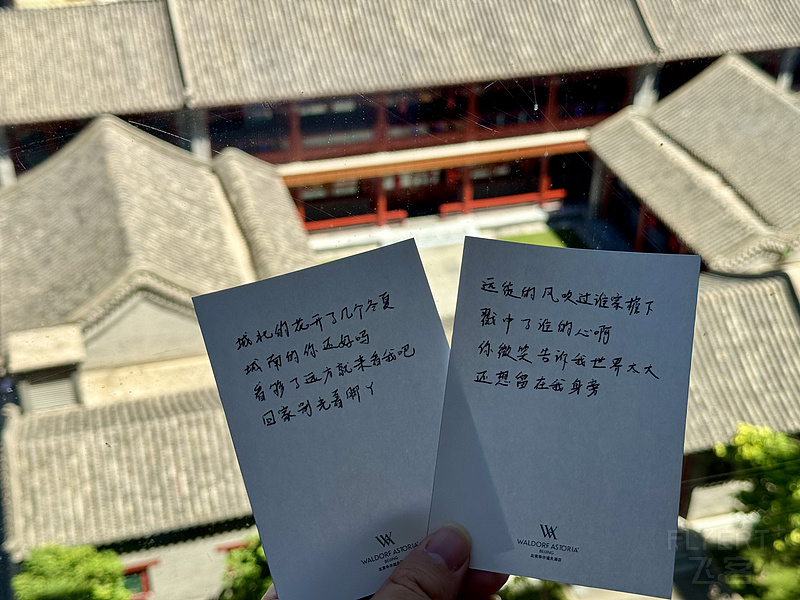 城北的花开了几个冬夏
城南的你还好吗
看掺了远方就来看我吧
回家别光着脚丫
WALDORF ASTORIA
BEIJING
北京华尔道夫酒店
远徙的风吹过谁家檐下
戳中了谁的心啊
你微笑告诉我世界太大
还想留在我身旁
WALDORF ASTORIA
BEIJING
北京华尔道夫酒店
FLYERT
飞客